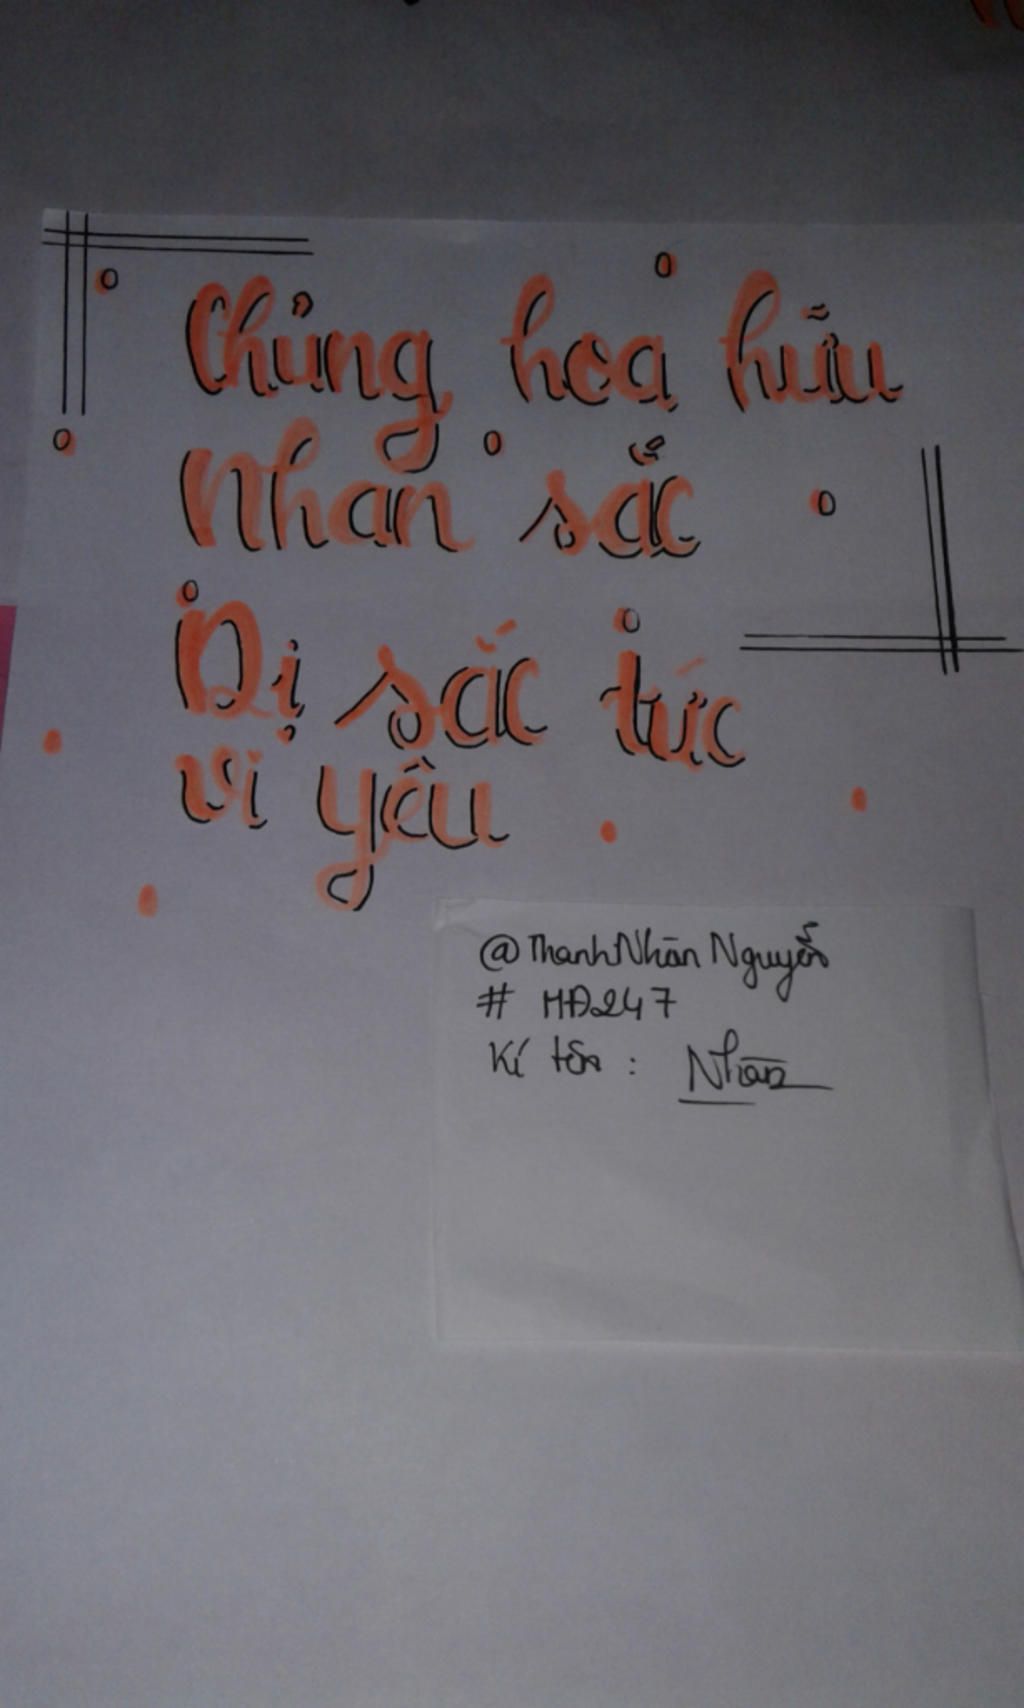 Chủng hoa hữu
Nhan sắc
Dị sắc tức
vi yêu
@Thanh Nhàn Nguyễn
# MĐ247
Kí tên : Nhàn